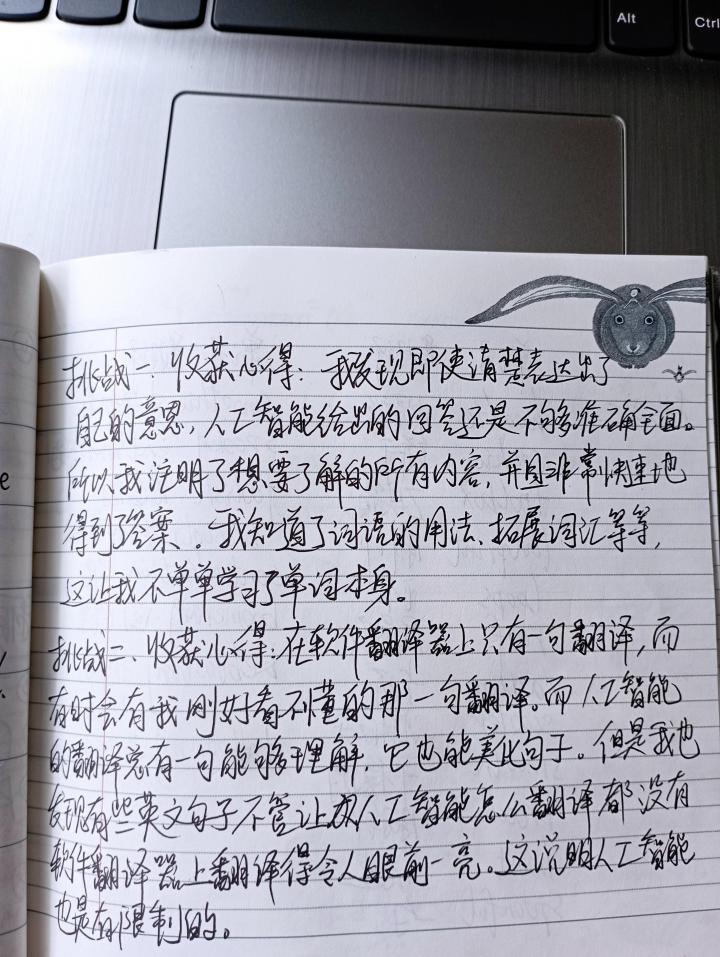 Alt
Ctrl
挑战一、收获心得：我发现即使清楚表达出了
自己的意思，人工智能给出的回答还是不够准确全面。
所以我注明了想要了解的所有内容，并且非常快速地
得到了答案。我知道了词语的用法、拓展词汇等等，
这让我不单单学习了单词本身。
挑战二、收获心得：在软件翻译器上只有一句翻译，而
有时会有我刚好看不懂的那一句翻译。而人工智能
的翻译总有一句能够理解，它也能美化句子。但是我也
发现有些英文句子不管让人工智能怎么翻译都没有
软件翻译器上翻译得令人眼前一亮。这说明人工智能
也是有限制的。